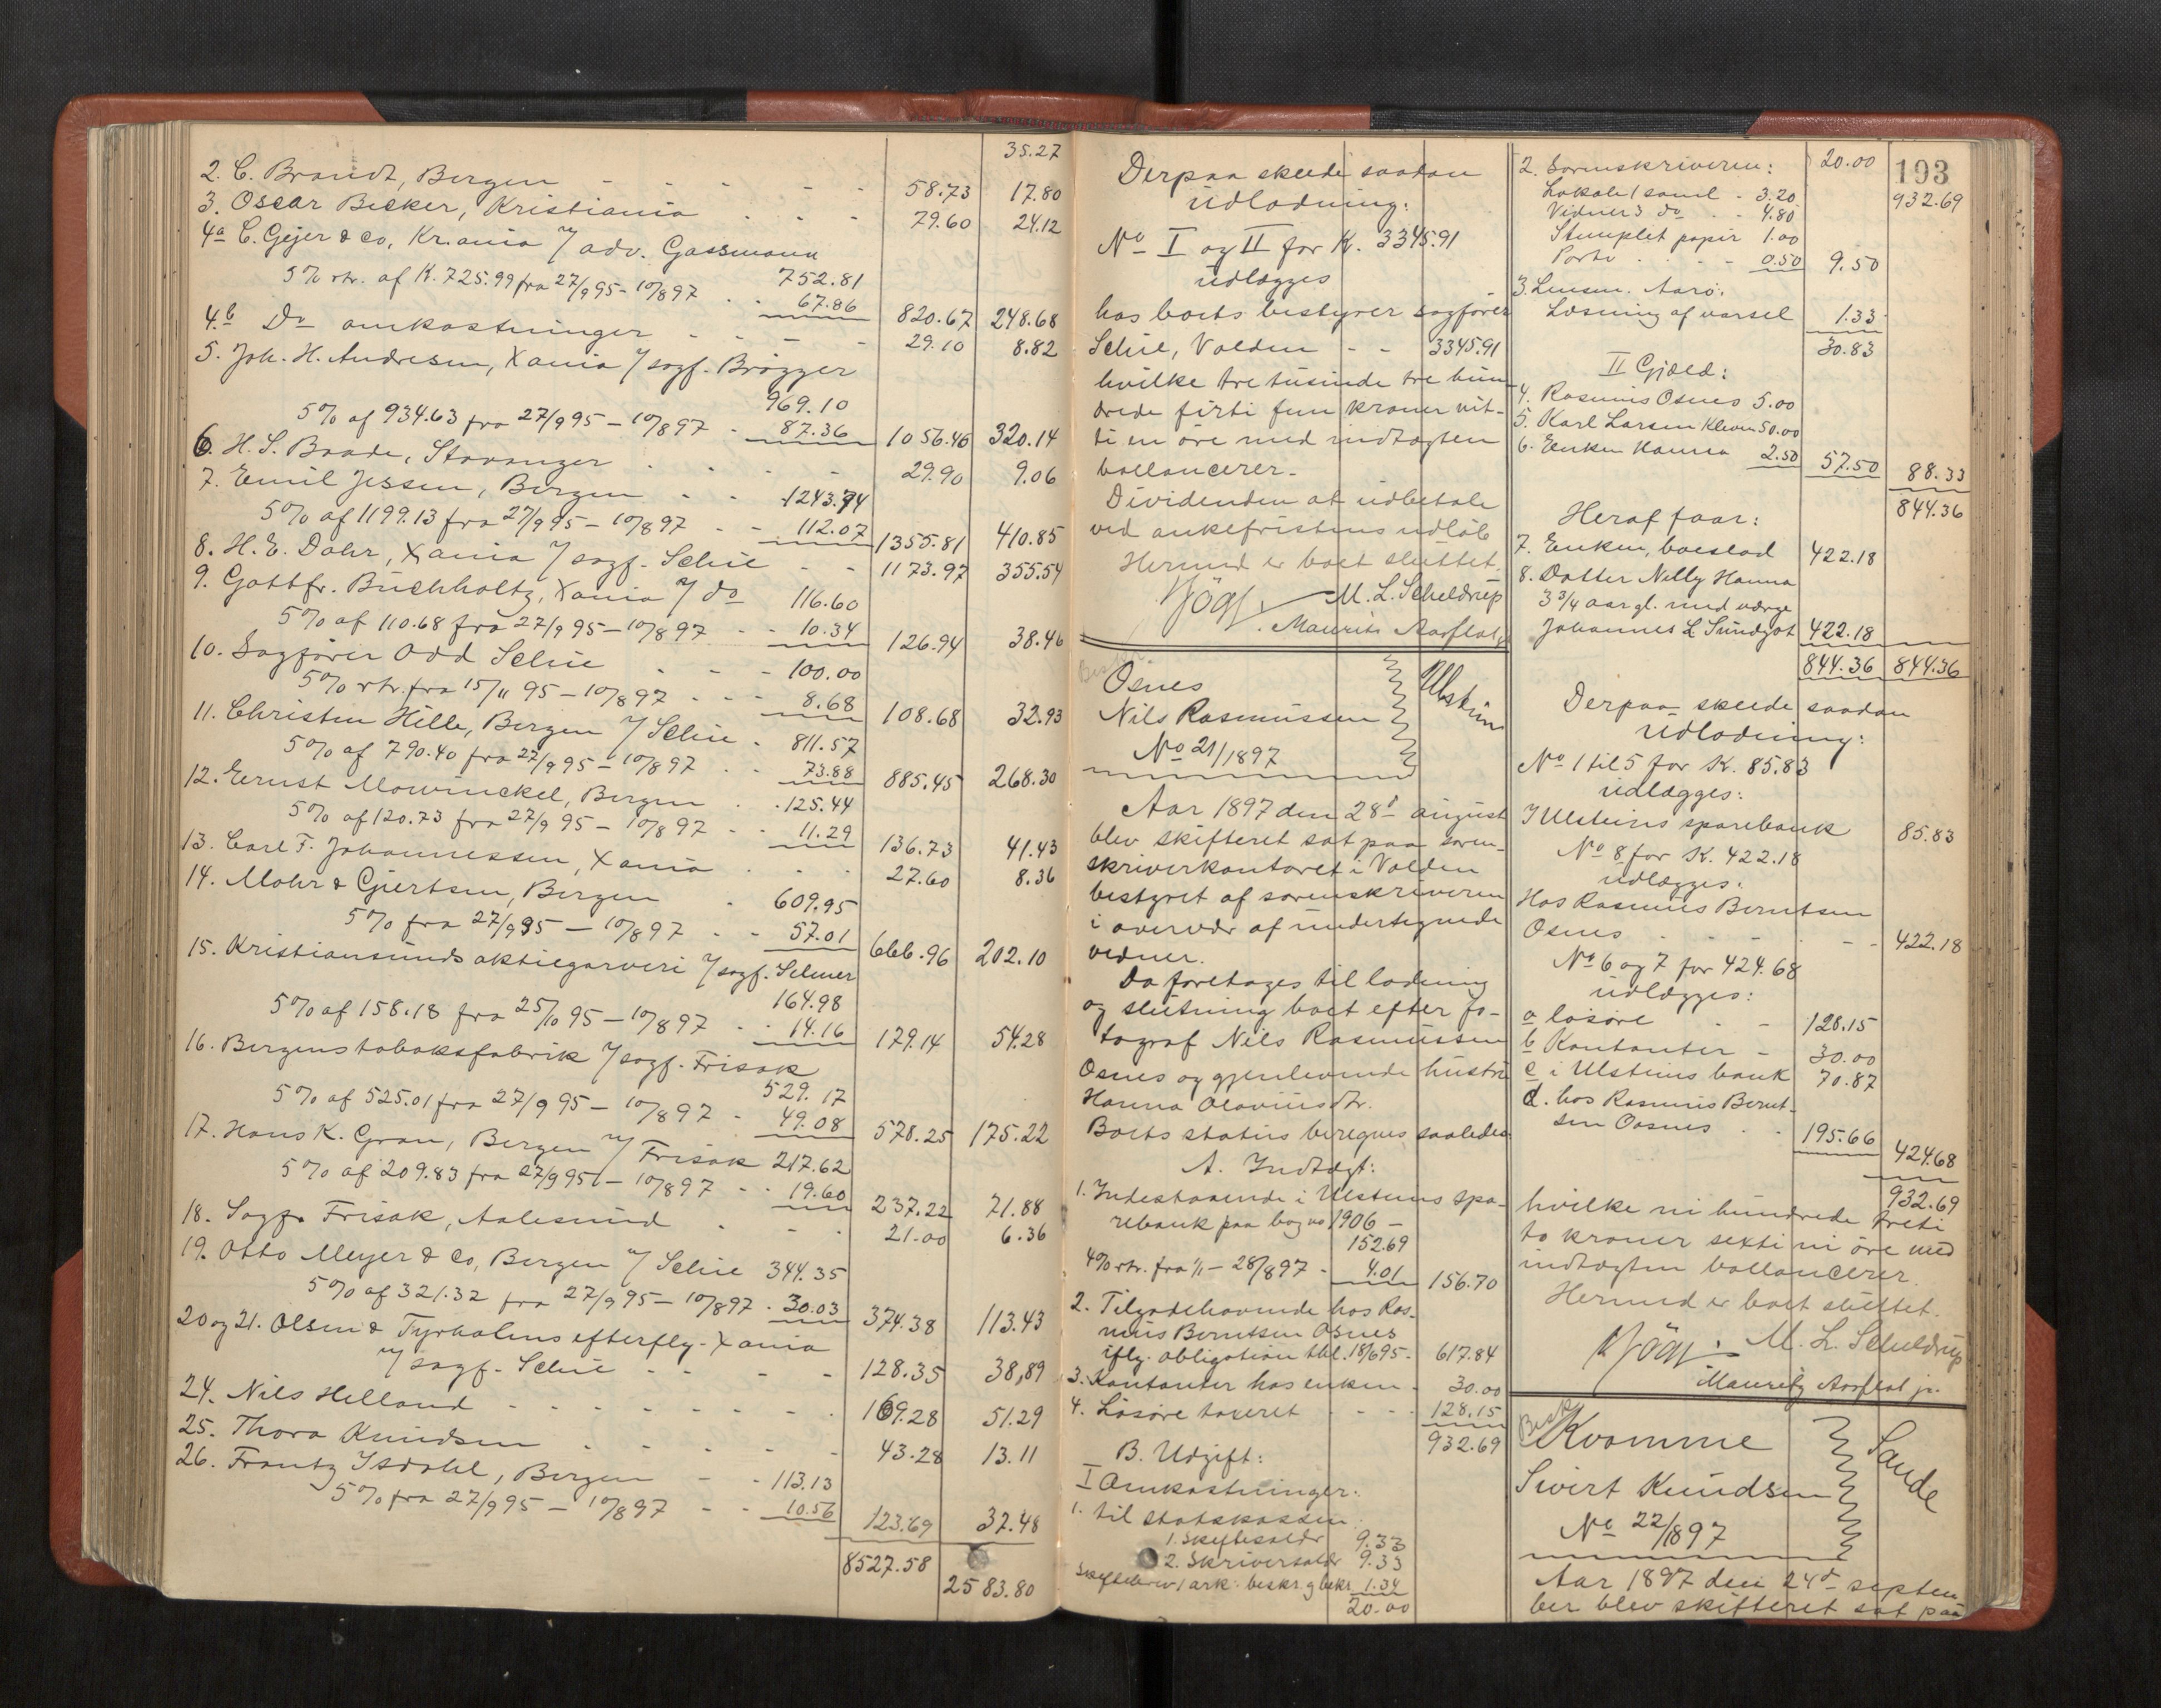 35.27
2. C. Brandt, Bergen - - - - - 58.73 17.80
3. Oscar Becker, Kristiania - - - 79.60 24.12
4a C. Gejer & Co, Kr.ania v/ adv. Gassmann
752.81
5% rtr. af K. 725.99 fra 27/9 95 - 10/8 97 - - 67.86 820.67 248.68
4b Do omkostninger - - - - 29.10 8.82
5. Joh. H. Andresen, Xania v/ sagf. Brøgger
969.10
5% af 934.63 fra 27/9 95 - 10/8 97 - 87.36 1056.46 320.14
6. H. S. Baade, Stavanger - - - - 29.90 9.06
7. Emil Jessen, Bergen - - 1243.74
5% af 1199.13 fra 27/9 95 - 10/8 97 - - 112.07 1355.81 410.85
8. H. E. Dahr, Xania v/ sagf. Schie - - 1173.97 355.54
9. Gottfr. Buchholtz, Xania v/ do 116.60
5% af 110.68 fra 27/9 95 - 10/8 97 - - 10.34 126.94 38.46
10. Sagfører Odd Schie - - - 100.00
5% rtr. fra 15/11 95 - 10/8 97 - - - 8.68 108.68 32.93
11. Christen Hille, Bergen v/ Schie - 811.57
5% af 790.40 fra 27/9 95 - 10/8 97 - - 73.88 885.45 268.30
12. Ernst Mowinckel, Bergen - - 125.44
5% af 120.73 fra 27/9 95 - 10/8 97 - - 11.29 136.73 41.43
13. Carl F. Johannessen, Xania - - - 27.60 8.36
14. Mohr & Gjertsen, Bergen - 609.95
5% fra 27/9 95 - 10/8 97 - - 57.01 666.96 202.10
15. Kristiansunds aktiegarveri v/ sagf. Selmer
164.98
5% af 158.18 fra 25/10 95 - 10/8 97 - - 14.16 179.14 54.28
16. Bergens tobaksfabrik v/ sagf. Frisak
529.17
5% af 525.01 fra 27/9 95 - 10/8 97 - 49.08 578.25 175.22
17. Hans K. Gran, Bergen v/ Frisak 217.62
5% af 209.83 fra 27/9 95 - 10/8 97 - - 19.60 237.22 71.88
18. Sagf. Frisak, Aalesund - - - 21.00 6.36
19. Otto Meyer & Co, Bergen v/ Schie 344.35
5% af 321.32 fra 27/9 95 - 10/8 97 - 30.03 374.38 113.43
20 og 21. Olsen & Tyrholms efterflg. Xania
v/ sagf. Schie - - - - 128.35 38,89
24. Nils Helland - - - - - - - 169.28 51.29
25. Thora Knudsen - - - - - 43.28 13.11
26. Frantz Isdahl, Bergen - - 113.13
5% fra 27/9 95 - 10/8 97 - - 10.56 123.69 37.48
8527.58 2583.80
Derpaa skeede saadan
udlodning:
No I og II for K. 3345.91
udlægges
hos boets bestyrer sagfører
Schie, Volden - - 3345.91
hvilke tre tusinde tre hun-
drede firti fem kroner nit-
ti en øre med indtægten
ballancerer.
Dividenden at udbetale
ved ankefristens udløb
Hermed er boet sluttet.
M. L. Scheldrup
Maurits Aarflot jr
Osnes
Nils Rasmussen
No 21/1897
Ulstein
Aar 1897 den 28de august
blev skifteret sat paa soren-
skriverkontoret i Volden
bestyret af sorenskriveren
i overvær af undertegnede
vidner.
Da foretages til lodning
og slutning boet efter fo-
tograf Nils Rasmussen
Osnes og gjenlevende hustru
Hanna Olaviusdtr.
Boets status beregnes saaledes
A. Indtægt:
1. Indestaaende i Ulsteins spa-
rebank paa bog no 1906 -
152.69
4% rtr. fra 1/1 - 28/8 97 - 4.01 156.70
2. Tilgodehavende hos Ras-
mus Berntsen Osnes
iflg. obligation thl. 18/6 95 - 617.84
3. Kontanter hos enken - 30.00
4. Løsøre taxeret - - - 128.15
932.69
B. Udgift:
I Omkostninger.
1. til statskassen:
1. Skiftesaldr 9.33
2. Skriversaldr 9.33
Skiftebrev 1 ark. beskr. g bekr 1.34
20.00
193
2. Sorenskriveren: 20.00 932.69
Lokale 1 saml - 3.20
Vidner 3 do - - 4.80
Stemplet papir 1.00
Porto - - - 0.50 9.50
3. Lensm. Aarø:
Læsning af varsel 1.33
30.83
II Gjæld:
4. Rasmus Osnes 5.00
5. Karl Larsen Kleven 50.00
6. Enken Hanna 2.50 57.50 88.33
844.36
Heraf faar:
7. Enken, boeslod 422.18
8. Datter Nelly Hanna
3 3/4 aar gl. med værge
Johannes L Sundgot 422.18
844.36 844.36
Derpaa skeede saadan
Udlodning:
No 1 til 5 for K. 85.83
udlægges:
I Ulsteins sparebank 85.83
No 8 for K. 422.18
udlægges:
Hos Rasmus Berntsen
Osnes - - - - - 422.18
No 6 og 7 for 424.68
udlægges:
a løsøre - - 128.15
b Kontanter - 30.00
c i Ulsteins bank 70.87
d. hos Rasmus Bernt-
sen Oosnes - - 195.66 424.68
932.69
hvilke ni hundrede treti
to kroner sexti ni øre med
indtægten ballancerer.
Hermed er boet sluttet.
M. L. Scheldrup
Mauritz Aarflot jr.
Kvamme
Sivert Knudsen
No 22/1897
Sande
Aar 1897 den 24de septem
ber blev skifteret sat paa